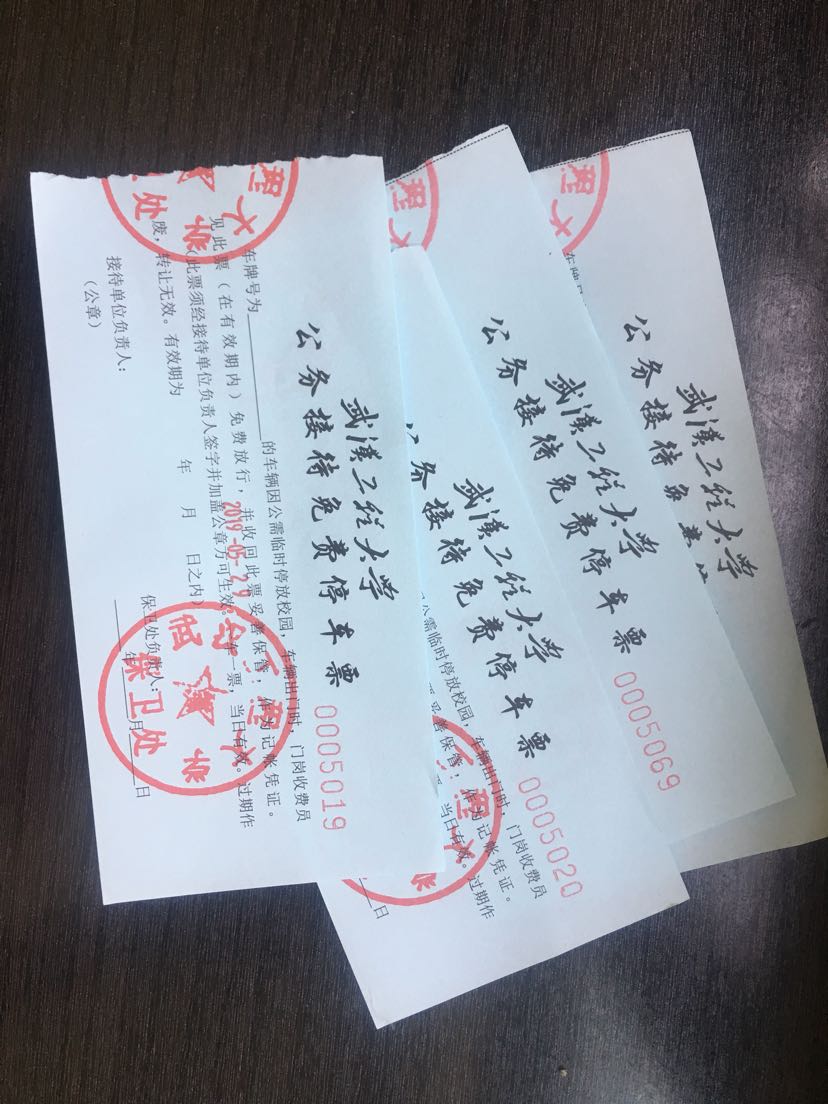 武漢工程大学
公务接待免费停车票 0005019
车牌号为________的车辆因公需临时停放校园，车辆出门时，门岗收费员
见此票（在有效期内）免费放行，并收回此票妥善保管，作为记帐凭证。
(此票须经接待单位负责人签字并加盖公章方可生效。一车一票，当日有效。过期作
废，转让无效。有效期为 年 月 日之内)
接待单位负责人： 保卫处负责人：
（公章） ____年____月____日
2019-05-29
保卫处
武漢工程大学
公务接待免费停车票 0005020
公需临时停放校园，车辆出门时，门岗收费员
妥善保管，作为记帐凭证。
当日有效。过期作
日
武漢工程大学
公务接待免费停车票 0005069
武漢工程大学
公务接待免费
车牌